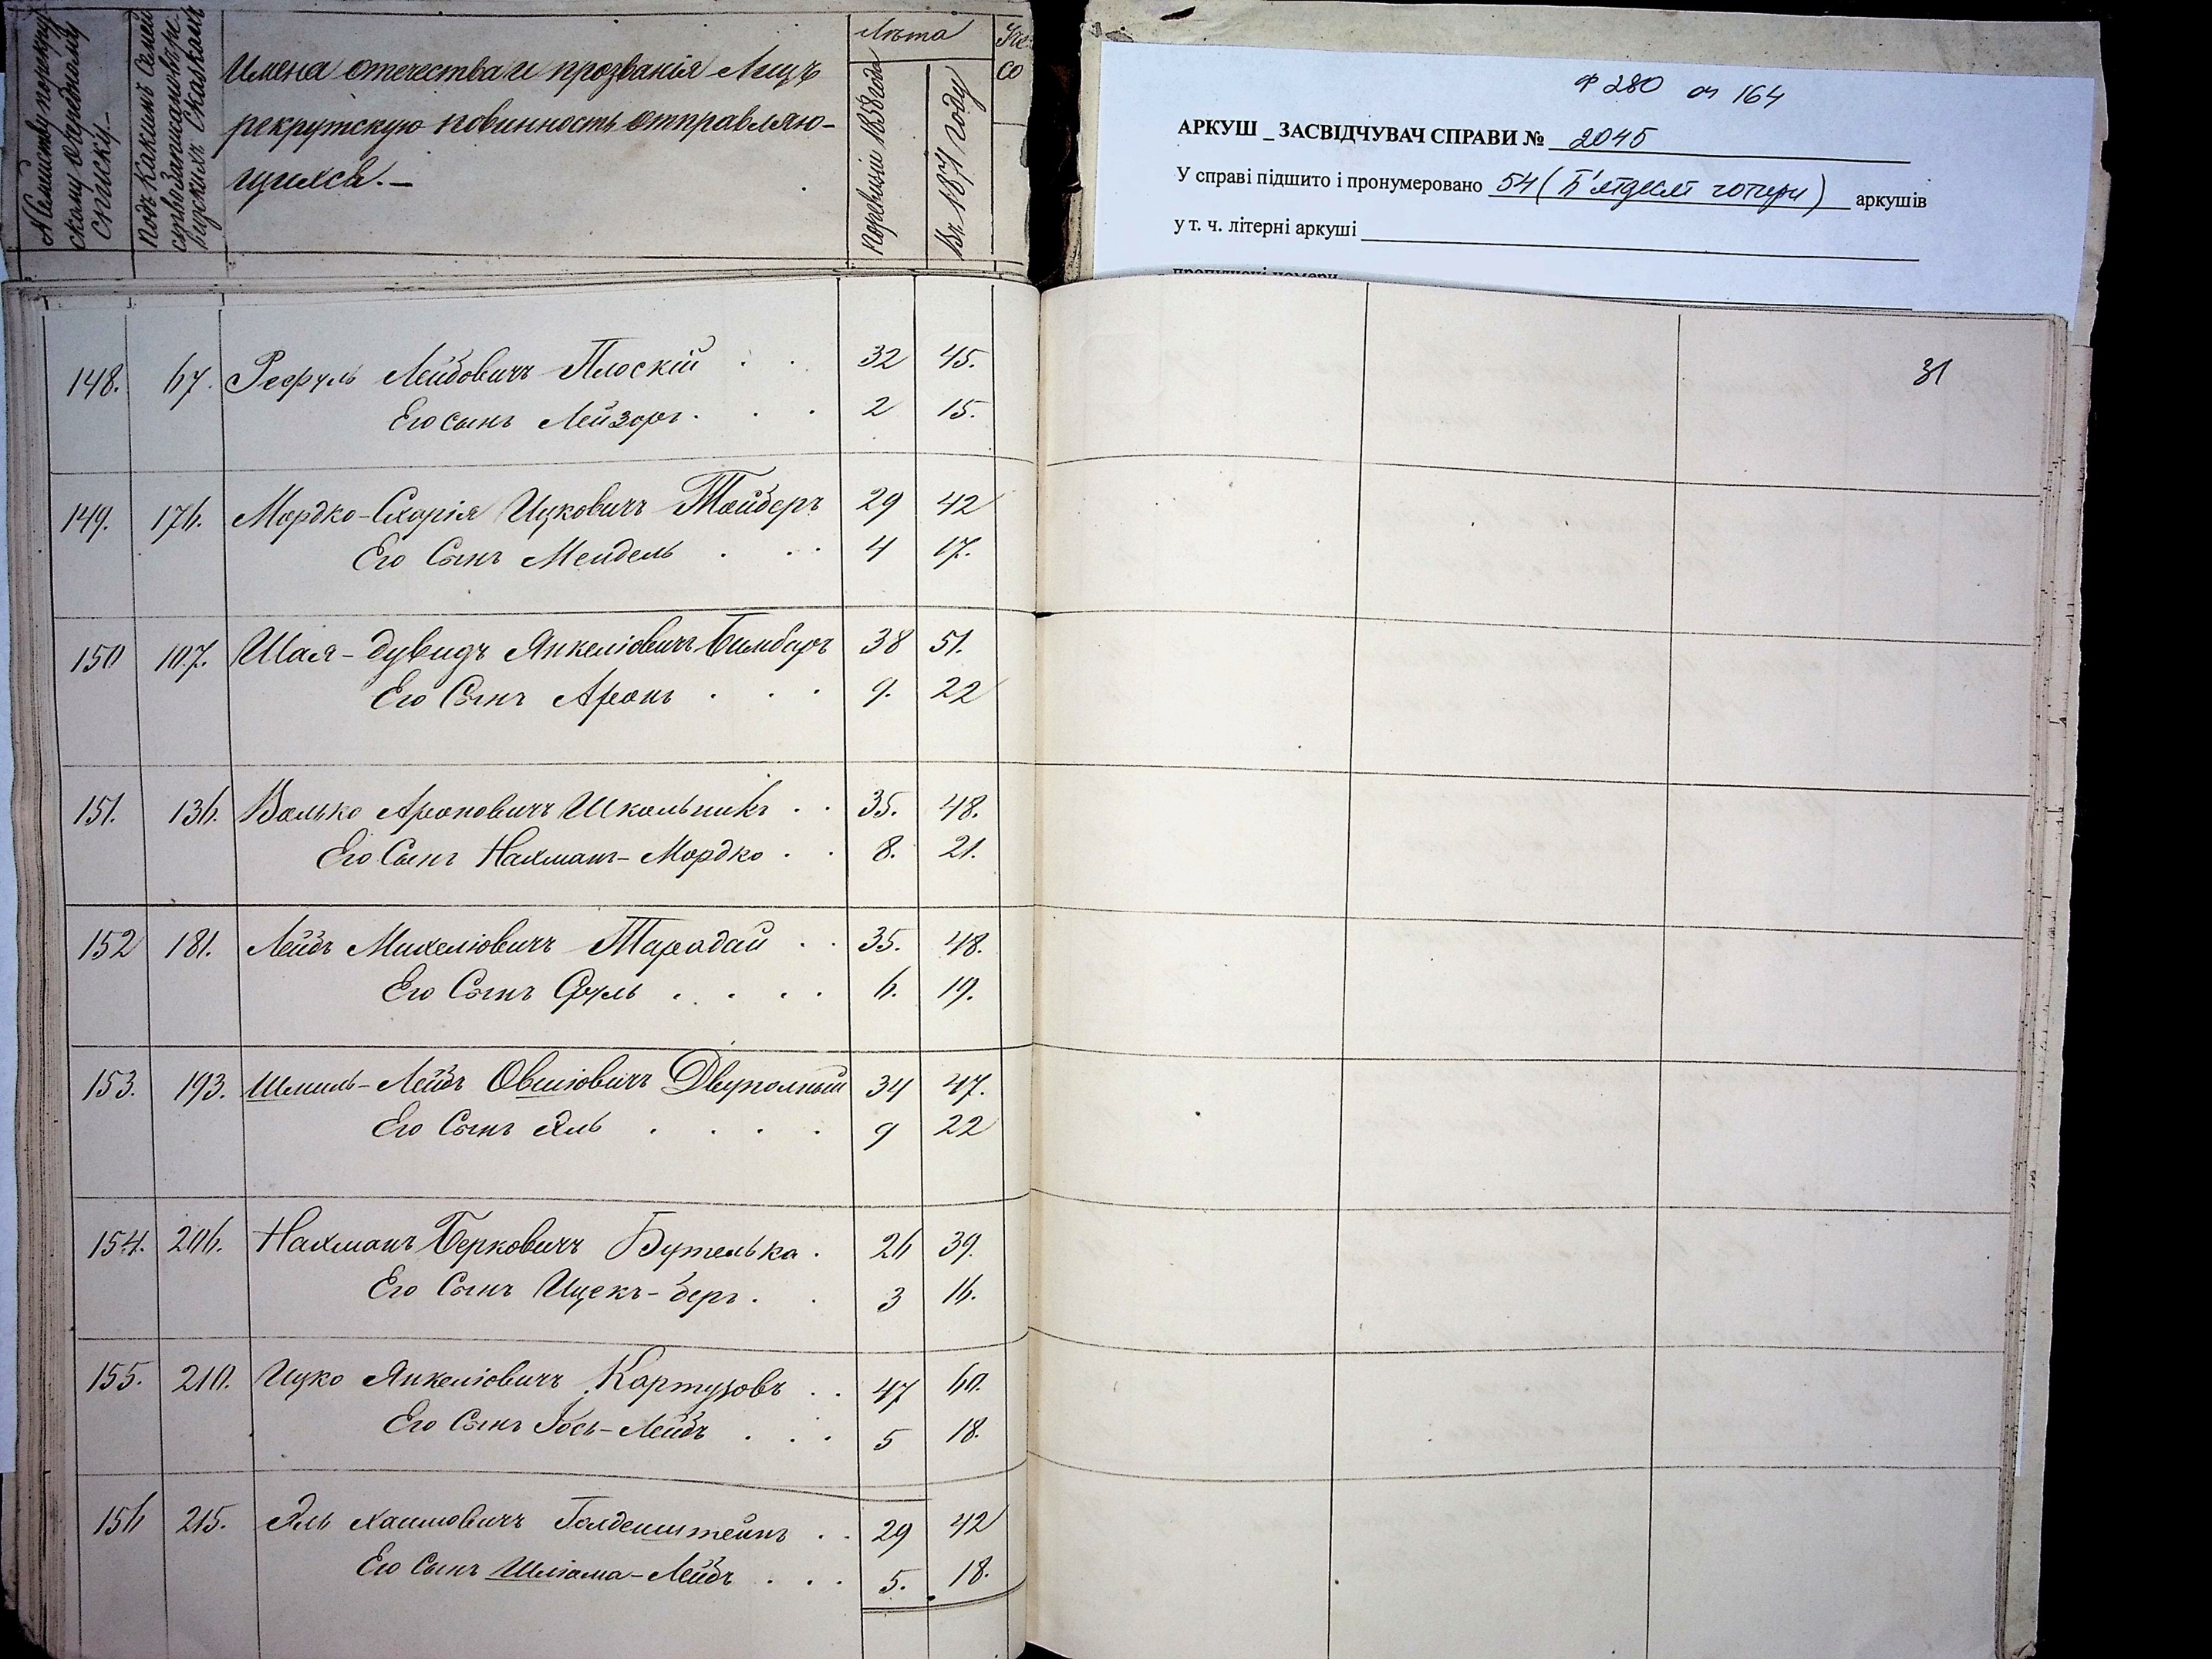 № Семейству по рекрутскому очередному списку.—
Подъ какимъ Семействомъ записаны въ ревизскихъ Сказкахъ
Имена отечества и прозванія Лицъ
рекрутскую повинность отправляю-
щихся.—
Лѣта
По ревизіи 1858 года
Въ 1871 году
Ф 280 оп 164
АРКУШ _ ЗАСВІДЧУВАЧ СПРАВИ № 2045
У справі підшито і пронумеровано 54 (П'ятдесят чотири) аркушів
у т. ч. літерні аркуші
пропущені номери
31
148. 67. Лейбовичъ Плоскій . . 32 45.
Его сынъ Лейзоръ . . . 2 15.
149. 176. Мордко-Схарія Ицковичъ Тайберъ 29 42
Его Сынъ Мендель . . . 4 17.
150 107. Шая-дувидъ Янкеліовичъ Бимберъ 38 51.
Его Сынъ Аронъ . . . 9. 22
151. 136. Волько Ароновичъ Школьникъ . . 35. 48.
Его Сынъ Нахманъ-Мордко . . 8. 21.
152 181. Лейбъ Михеліовичъ Тарадай . . 35. 48.
Его Сынъ Сруль . . . . 6. 19.
153. 193. Шмиль-Лейбъ Овшіовичъ Двуполный 34 47.
Его Сынъ Эль . . . . 9 22
154. 206. Нахманъ Берковичъ Бутелька . 26 39.
Его Сынъ Ицекъ-беръ . . 3 16.
155. 210. Ицко Янкеліовичъ Картузовъ . . 47 60.
Его Сынъ Іось-Лейбъ . . . 5 18.
156 215. Эль Хаимовичъ Голденштейнъ . . 29 42
Его Сынъ Шліома-Лейбъ . . . 5. 18.